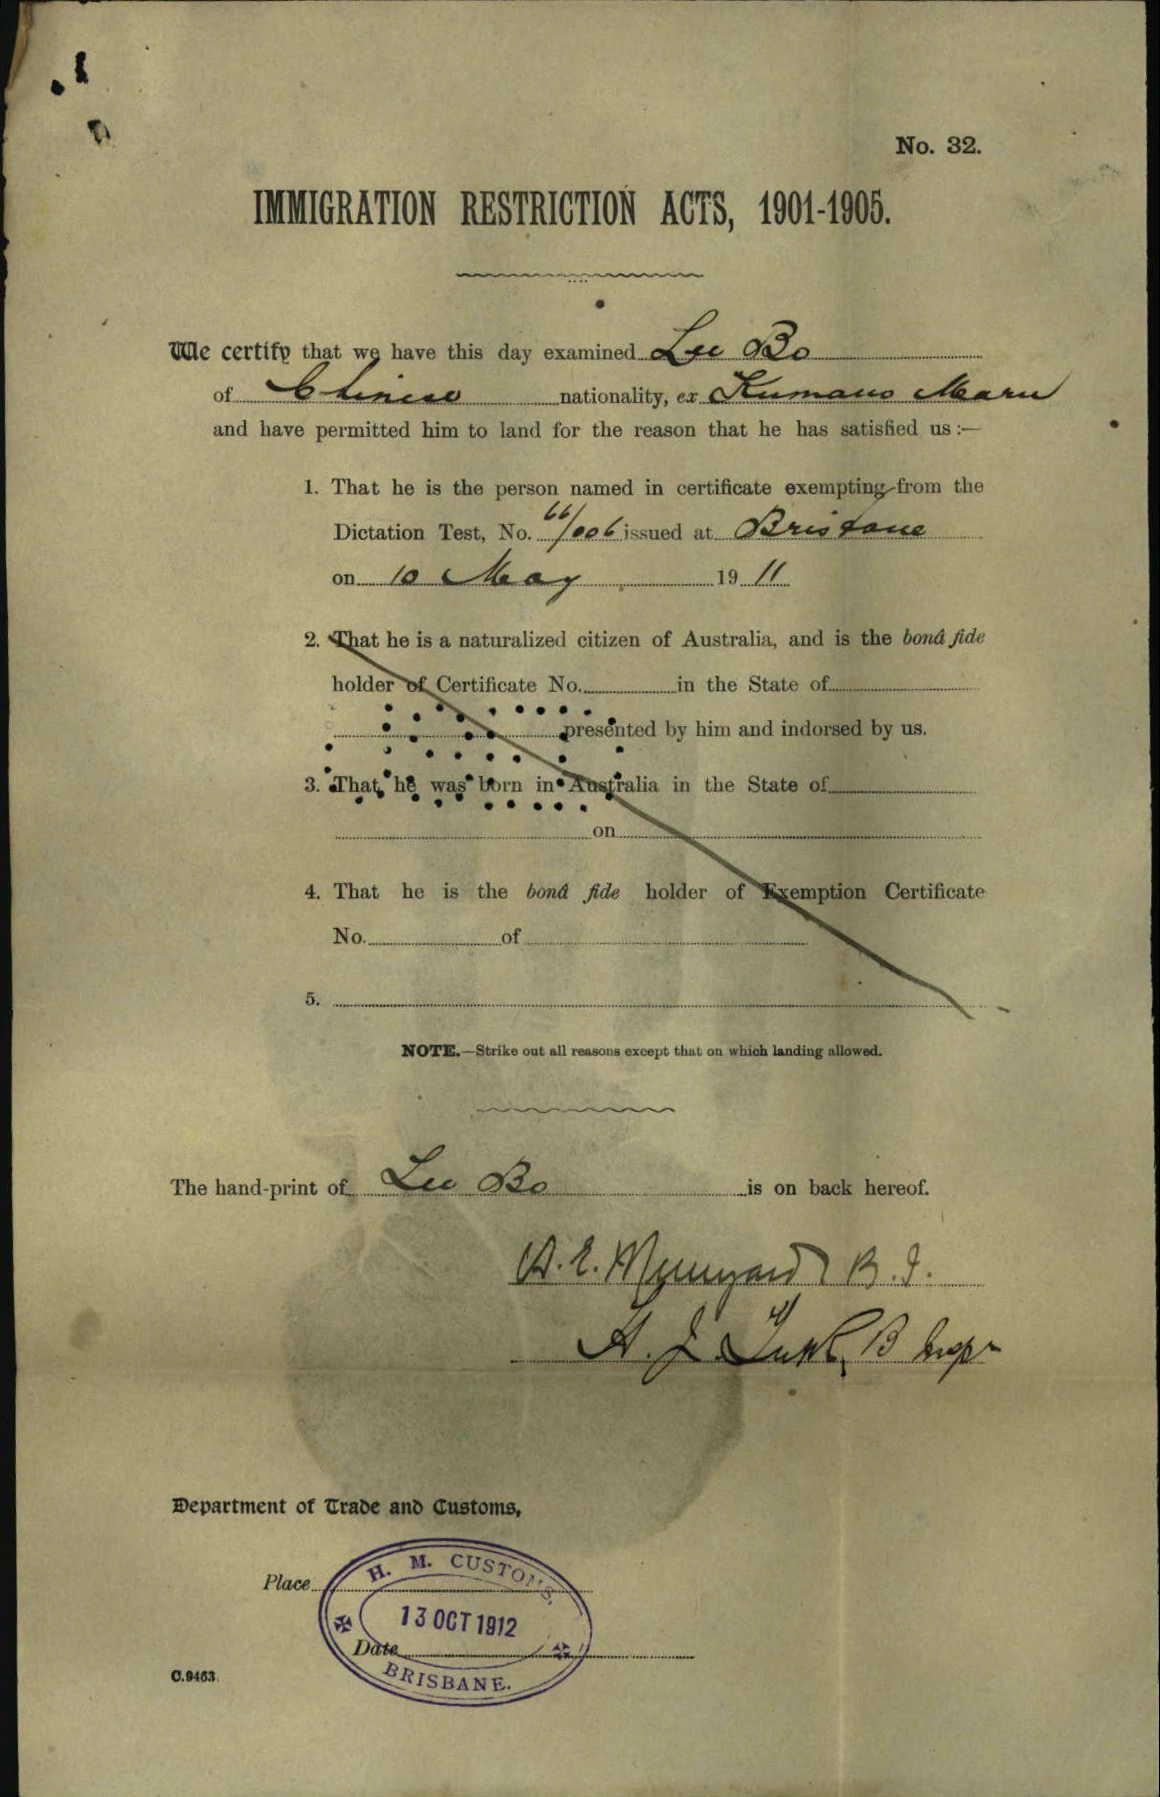 No. 32.
IMMIGRATION RESTRICTION ACTS, 1901-1905.
We certify that we have this day examined Lee Bo
of Chinese nationality, ex Kumano Maru
and have permitted him to land for the reason that he has satisfied us :—
1. That he is the person named in certificate exempting from the
Dictation Test, No. 66/006 issued at Brisbane
on 10 May 1911
2. That he is a naturalized citizen of Australia, and is the bonâ fide
holder of Certificate No. in the State of
presented by him and indorsed by us.
3. That he was born in Australia in the State of
on
4. That he is the bonâ fide holder of Exemption Certificate
No. of
5.
NOTE.—Strike out all reasons except that on which landing allowed.
The hand-print of Lee Bo is on back hereof.
B. I.
H. J. B Inspr
Department of Trade and Customs,
H. M. CUSTOMS,
Place
13 OCT 1912
Date
BRISBANE.
C.9463.